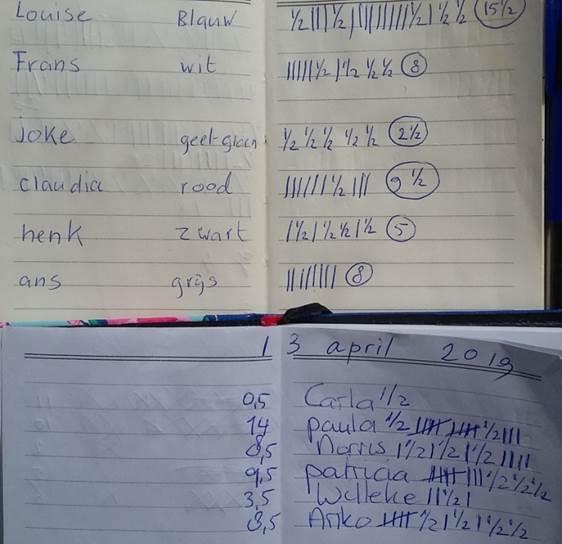 Louise Blauw ½ ||| ½ ||||||||| ½ | ½ ½ 15½
Frans wit ||||| ½ | ½ ½ ½ 8
joke geel-groen ½ ½ ½ ½ ½ 2½
claudia rood |||||| ½ ||| 9½
henk zwart | ½ | ½ ½ | ½ 5
ans grijs |||||||| 8
13 april 2019
0,5 Carla ½
14 paula ½ |||| |||| ½ |||
8,5 Norris | ½ | ½ | ½ ||||
9,5 patricia |||| ||| ½ ½ ½
3,5 Willeke || ½ |
8,5 Anko |||| ½ | ½ | ½ ½